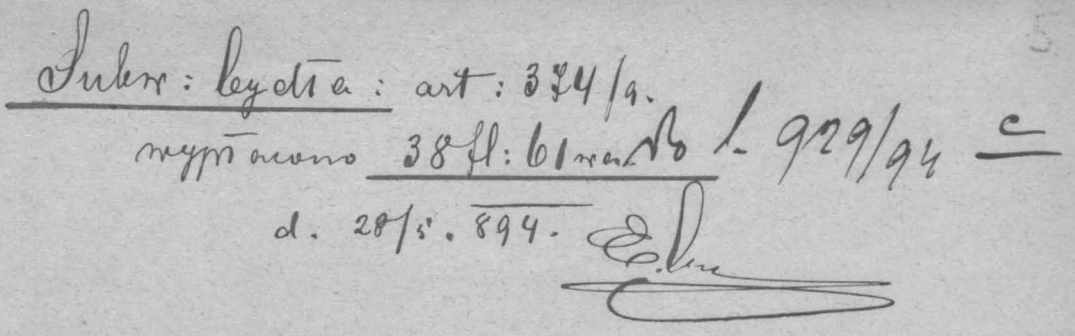 Subw: bydła: art: 374/a.
wypłacono 38 fl: 61 l. 929/94 c
d. 28/5. 894.